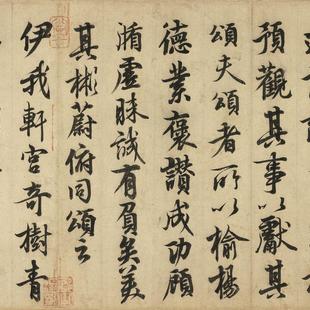 預觀其事以獻其
頌夫頌者所以揄揚
德業襃讚成功顧
循虛昧誠有負矣美
其彬蔚俯同頌云
伊我軒宮奇樹青